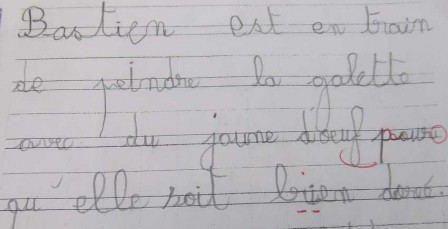 Bastien est en train
de peindre la galette
avec du jaune d'oeuf pour
qu'elle soit bien doré.